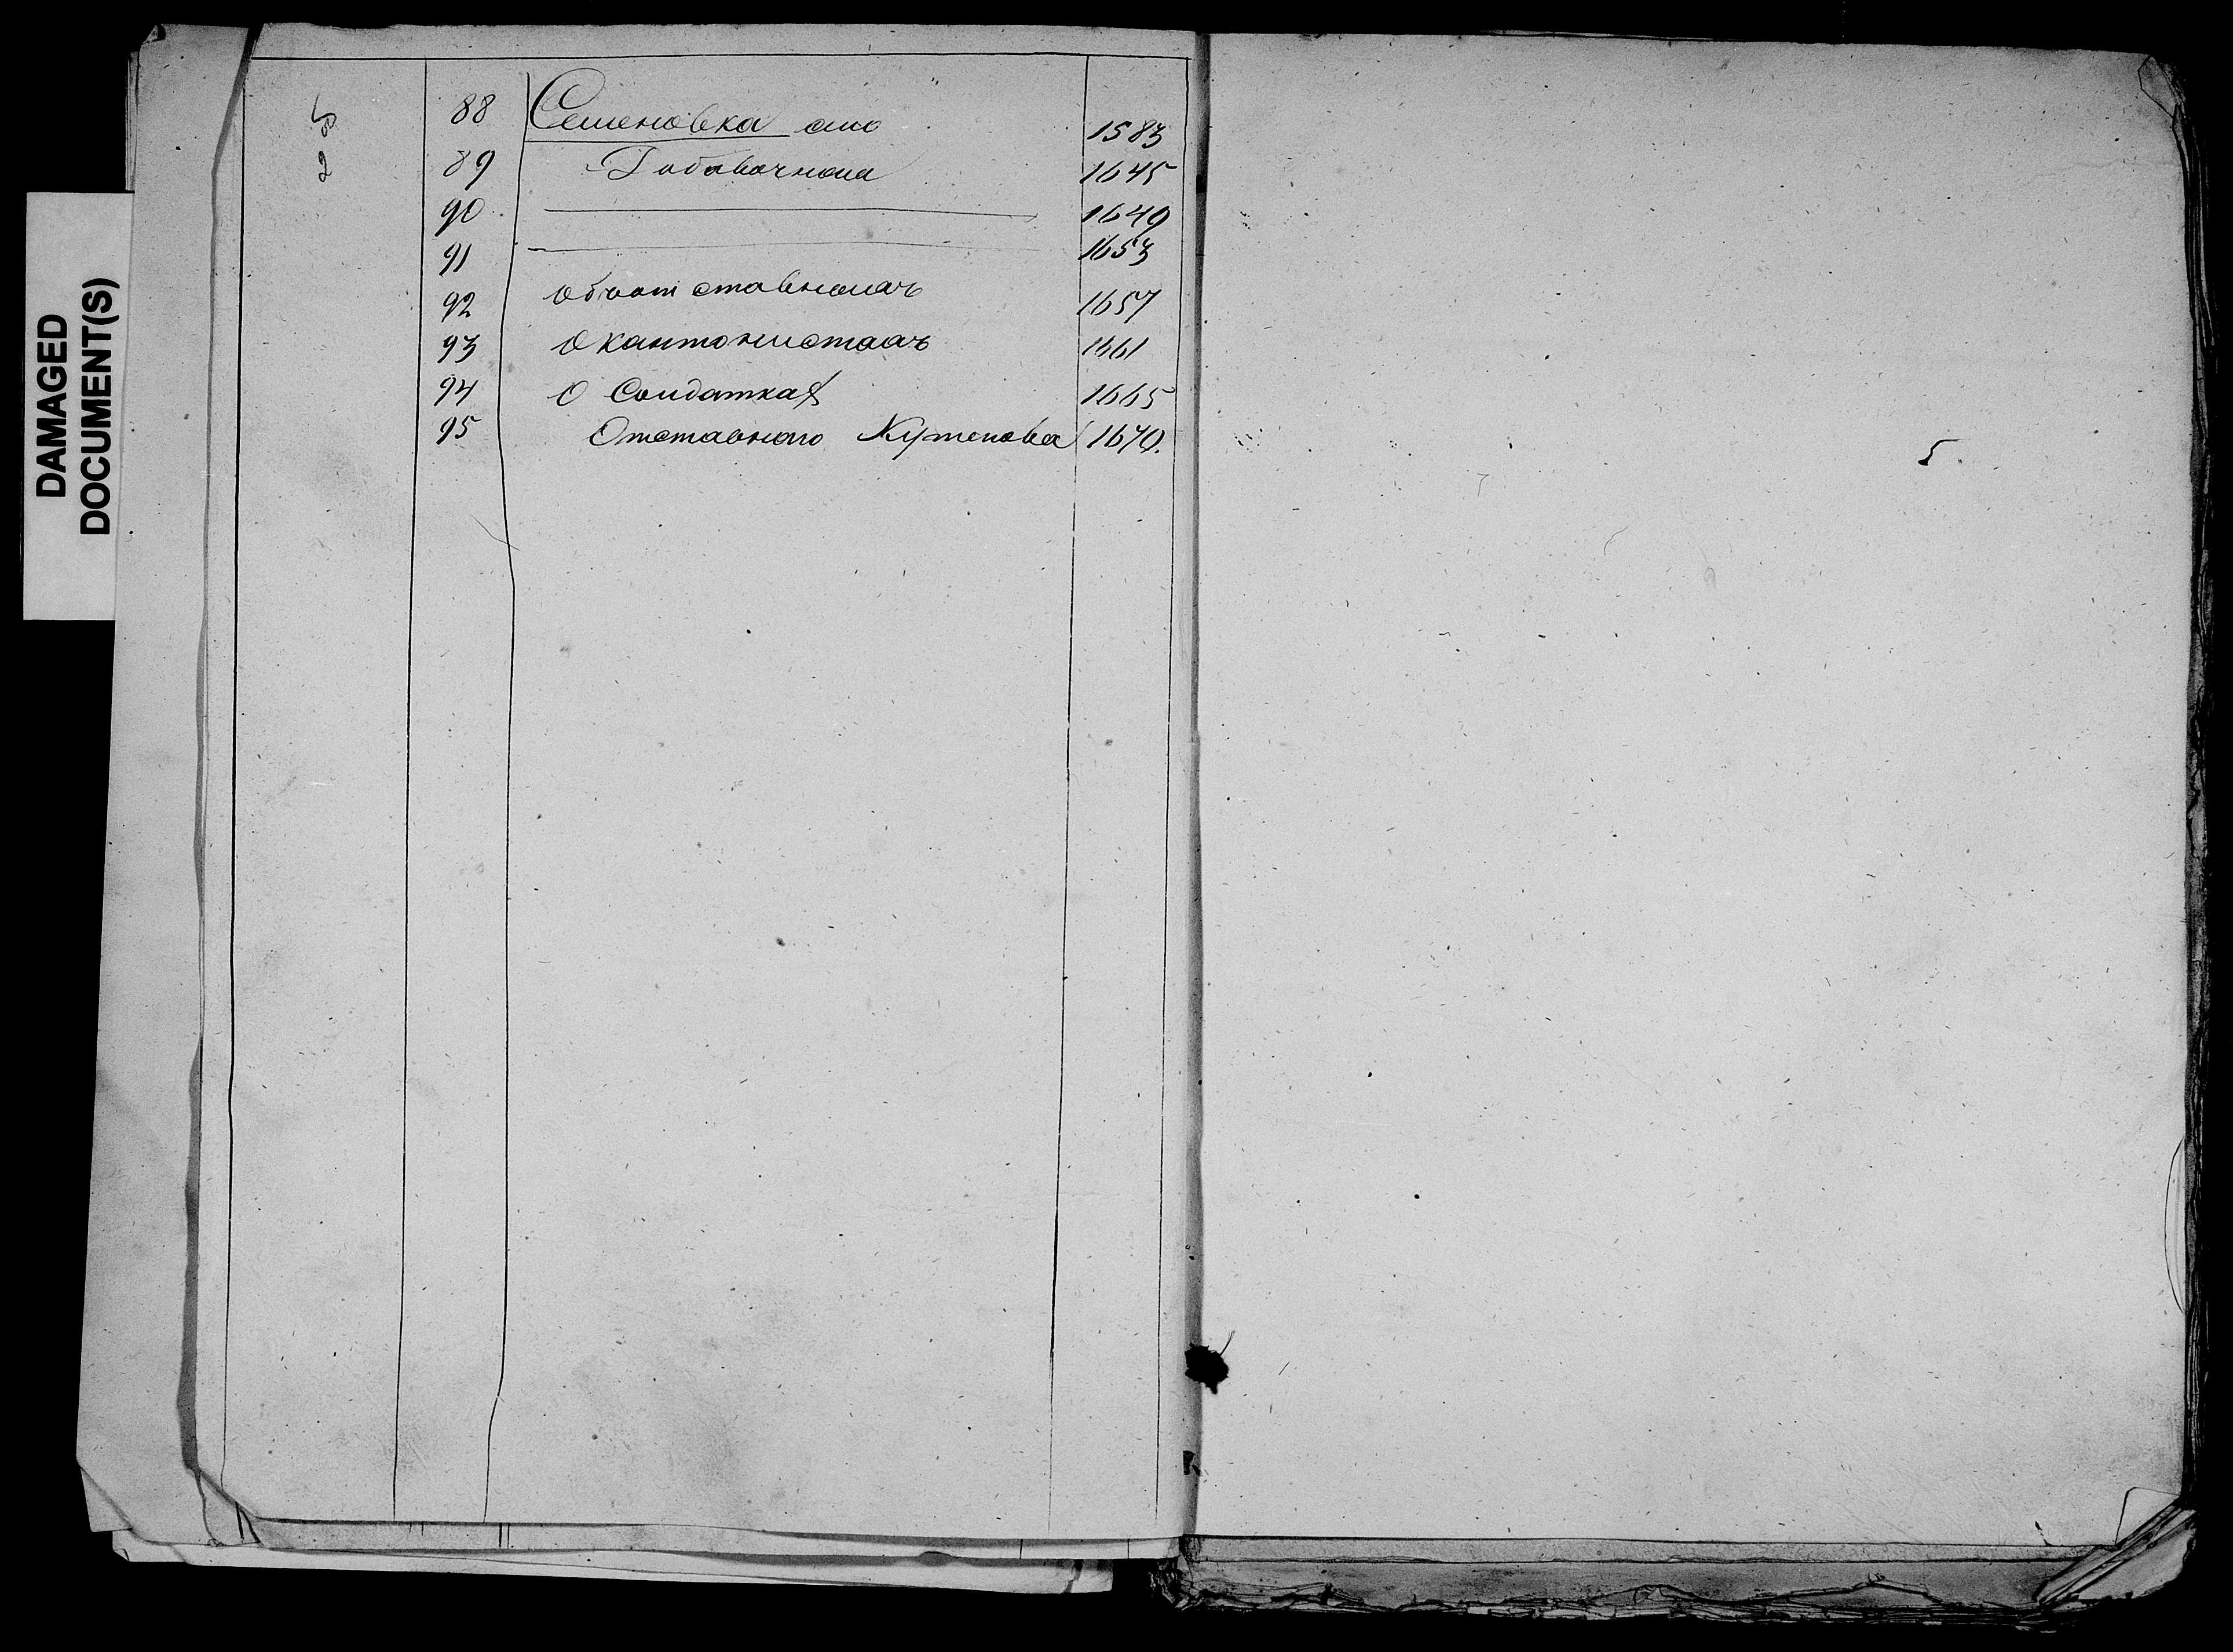 DAMAGED
DOCUMENT(S)
88 Семеновка 1583
89 1645
90 1649
91 1653
92 Объотставныхъ 1657
93 О кантонистахъ 1661
94 О Солдатках 1665
95 Отставного Кутепова 1670.